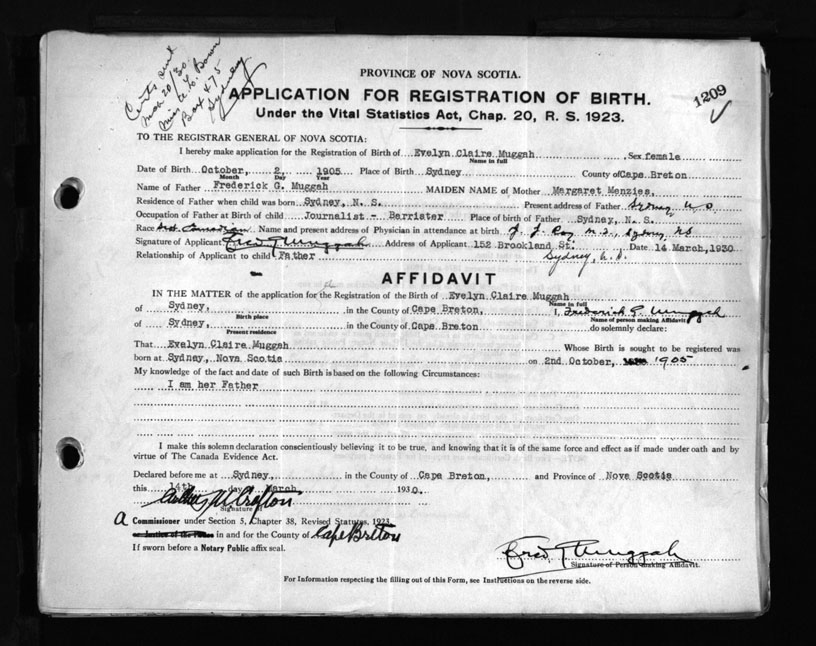 Certs sent
Mch 20/30.
Miss A. L. Bown
Box 475
Sydney
PROVINCE OF NOVA SCOTIA.
APPLICATION FOR REGISTRATION OF BIRTH.
1209
Under the Vital Statistics Act, Chap. 20, R. S. 1923.
TO THE REGISTRAR GENERAL OF NOVA SCOTIA:
I hereby make application for the Registration of Birth of Evelyn Claire Muggah, Sex female
Name in full
Date of Birth October, 2 1905 Place of Birth Sydney County of Cape Breton
Month Day Year
Name of Father Frederick G. Muggah MAIDEN NAME of Mother Margaret Menzies,
Residence of Father when child was born Sydney, N. S. Present address of Father Sydney N S
Occupation of Father at Birth of child Journalist - Barrister Place of birth of Father Sydney, N. S.
Race Canadian Name and present address of Physician in attendance at birth J. J. Roy M.D., Sydney NS
Signature of Applicant Fred G Muggah Address of Applicant 152 Brookland St. Date 14 March, 1930
Relationship of Applicant to child Father Sydney, N. S.
AFFIDAVIT
IN THE MATTER of the application for the Registration of the Birth of Evelyn Claire Muggah
Name in full
of Sydney, in the County of Cape Breton, I, Frederick G. Muggah
Birth place Name of person making Affidavit
of Sydney, in the County of Cape Breton do solemnly declare:
Present residence
That Evelyn Claire Muggah Whose Birth is sought to be registered was
born at Sydney, Nova Scotia on 2nd October, 1905
My knowledge of the fact and date of such Birth is based on the following Circumstances:
I am her Father
I make this solemn declaration conscientiously believing it to be true, and knowing that it is of the same force and effect as if made under oath and by
virtue of The Canada Evidence Act.
Declared before me at Sydney, in the County of Cape Breton, and Province of Nova Scotia
this 14th day March 1930.
Signature of
A Commissioner under Section 5, Chapter 38, Revised Statutes, 1923,
Justice of the Peace in and for the County of Cape Breton
If sworn before a Notary Public affix seal.
Fred G Muggah
Signature of Person making Affidavit.
For Information respecting the filling out of this Form, see Instructions on the reverse side.